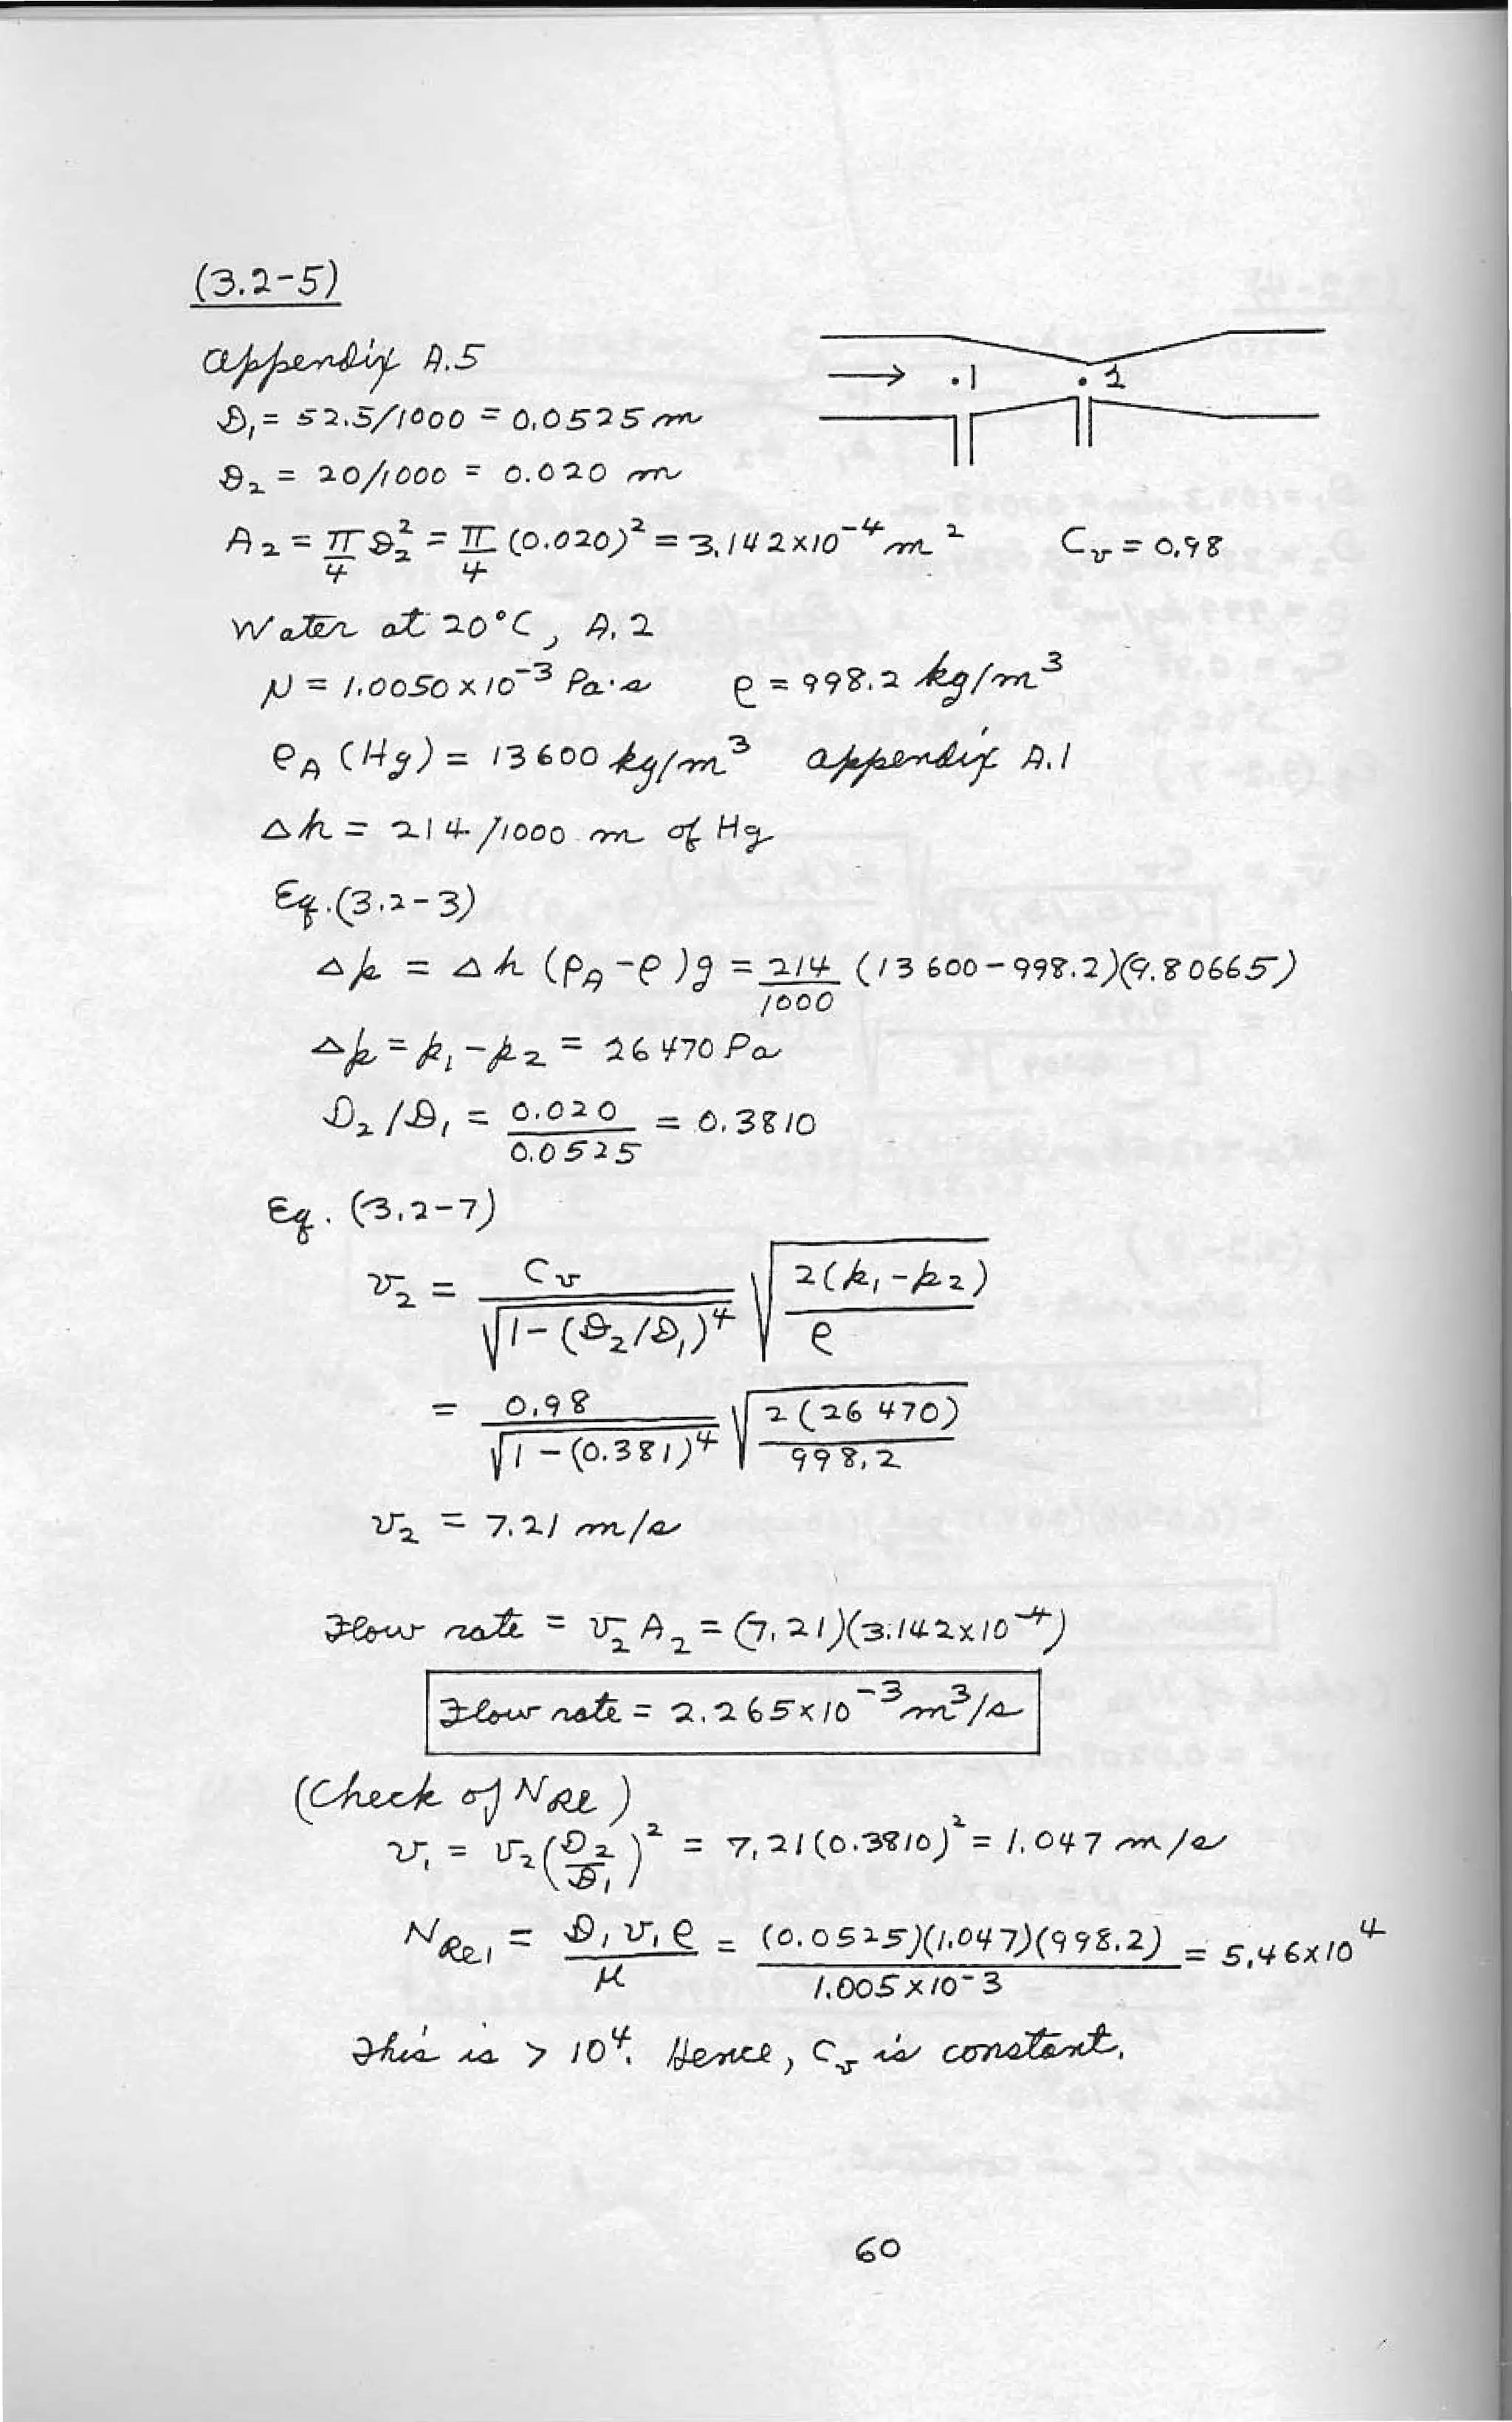 (3.2-5)
Appendix A.5
D₁ = 52.5/1000 = 0.0525 m
→ .1 .2
D₂ = 20/1000 = 0.020 m
A₂ = π/4 D₂² = π/4 (0.020)² = 3.142x10⁻⁴ m² Cᵥ = 0.98
Water at 20°C, A.2
μ = 1.0050 x 10⁻³ Pa·s ρ = 998.2 kg/m³
ρ_A (Hg) = 13600 kg/m³ appendix A.1
Δh = 214/1000 m of Hg
Eq.(3.2-3)
Δp = Δh (ρ_A - ρ)g = 214/1000 (13600-998.2)(9.80665)
Δp = p₁ - p₂ = 26470 Pa
D₂/D₁ = 0.020/0.0525 = 0.3810
Eq. (3.2-7)
v₂ = Cᵥ/√(1-(D₂/D₁)⁴) √(2(p₁-p₂)/ρ)
= 0.98/√(1-(0.381)⁴) √(2(26470)/998.2)
v₂ = 7.21 m/s
Flow rate = v₂A₂ = (7.21)(3.142x10⁻⁴)
Flow rate = 2.265x10⁻³ m³/s
(Check of N_Re)
v₁ = v₂(D₂/D₁)² = 7.21(0.3810)² = 1.047 m/s
N_Re₁ = D₁v₁ρ/μ = (0.0525)(1.047)(998.2)/1.005x10⁻³ = 5.46x10⁴
This is > 10⁴. Hence, Cᵥ is constant.
60